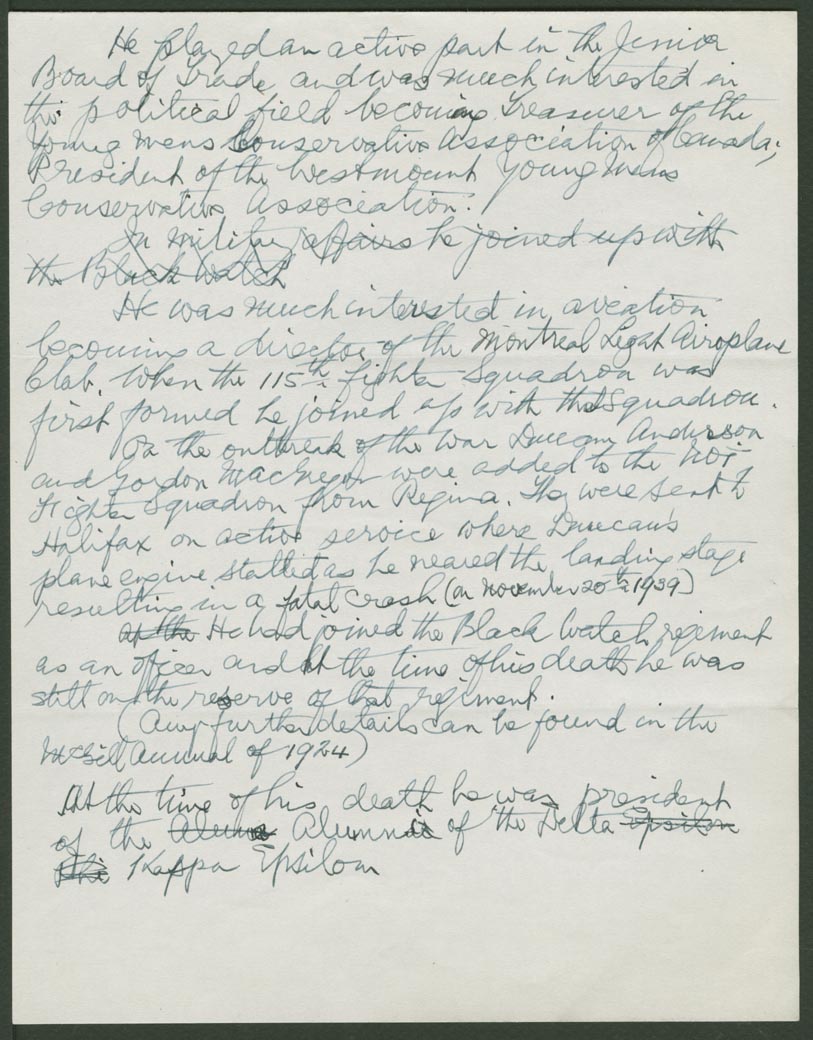 He played an active part in the Junior
Board of Trade, and was much interested in
the political field becoming Treasurer of the
Young Mens Conservative Association of Canada;
President of the Westmount Young Mens
Conservative Association.
In military affairs he joined up with
the Black Watch
He was much interested in aviation
becoming a director of the Montreal Light Aeroplane
Club. When the 115th Fighter Squadron was
first formed he joined up with this Squadron.
On the outbreak of the war Duncan Anderson
and Gordon MacGregor were added to the No 1
Fighter Squadron from Regina. They were sent to
Halifax on active service where Duncan's
plane engine stalled as he neared the landing stage
resulting in a fatal crash (on November 20th 1939)
at the He had joined the Black Watch regiment
as an officer and at the time of his death he was
still on the reserve of that regiment.
(Any further details can be found in the
McGill Annual of 1924)
At the time of his death he was president
of the Alumn Alumni of the Delta Epsilon
Phi Kappa Epsilon